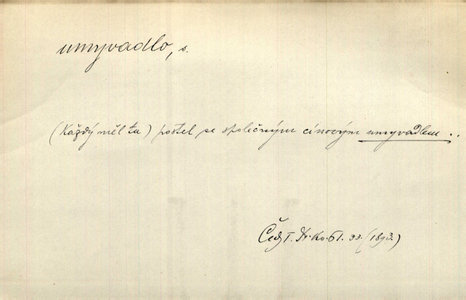 umyvadlo, s.
(Každý měl tu) postel se společným cínovým umyvadlem ..
33. (1893)